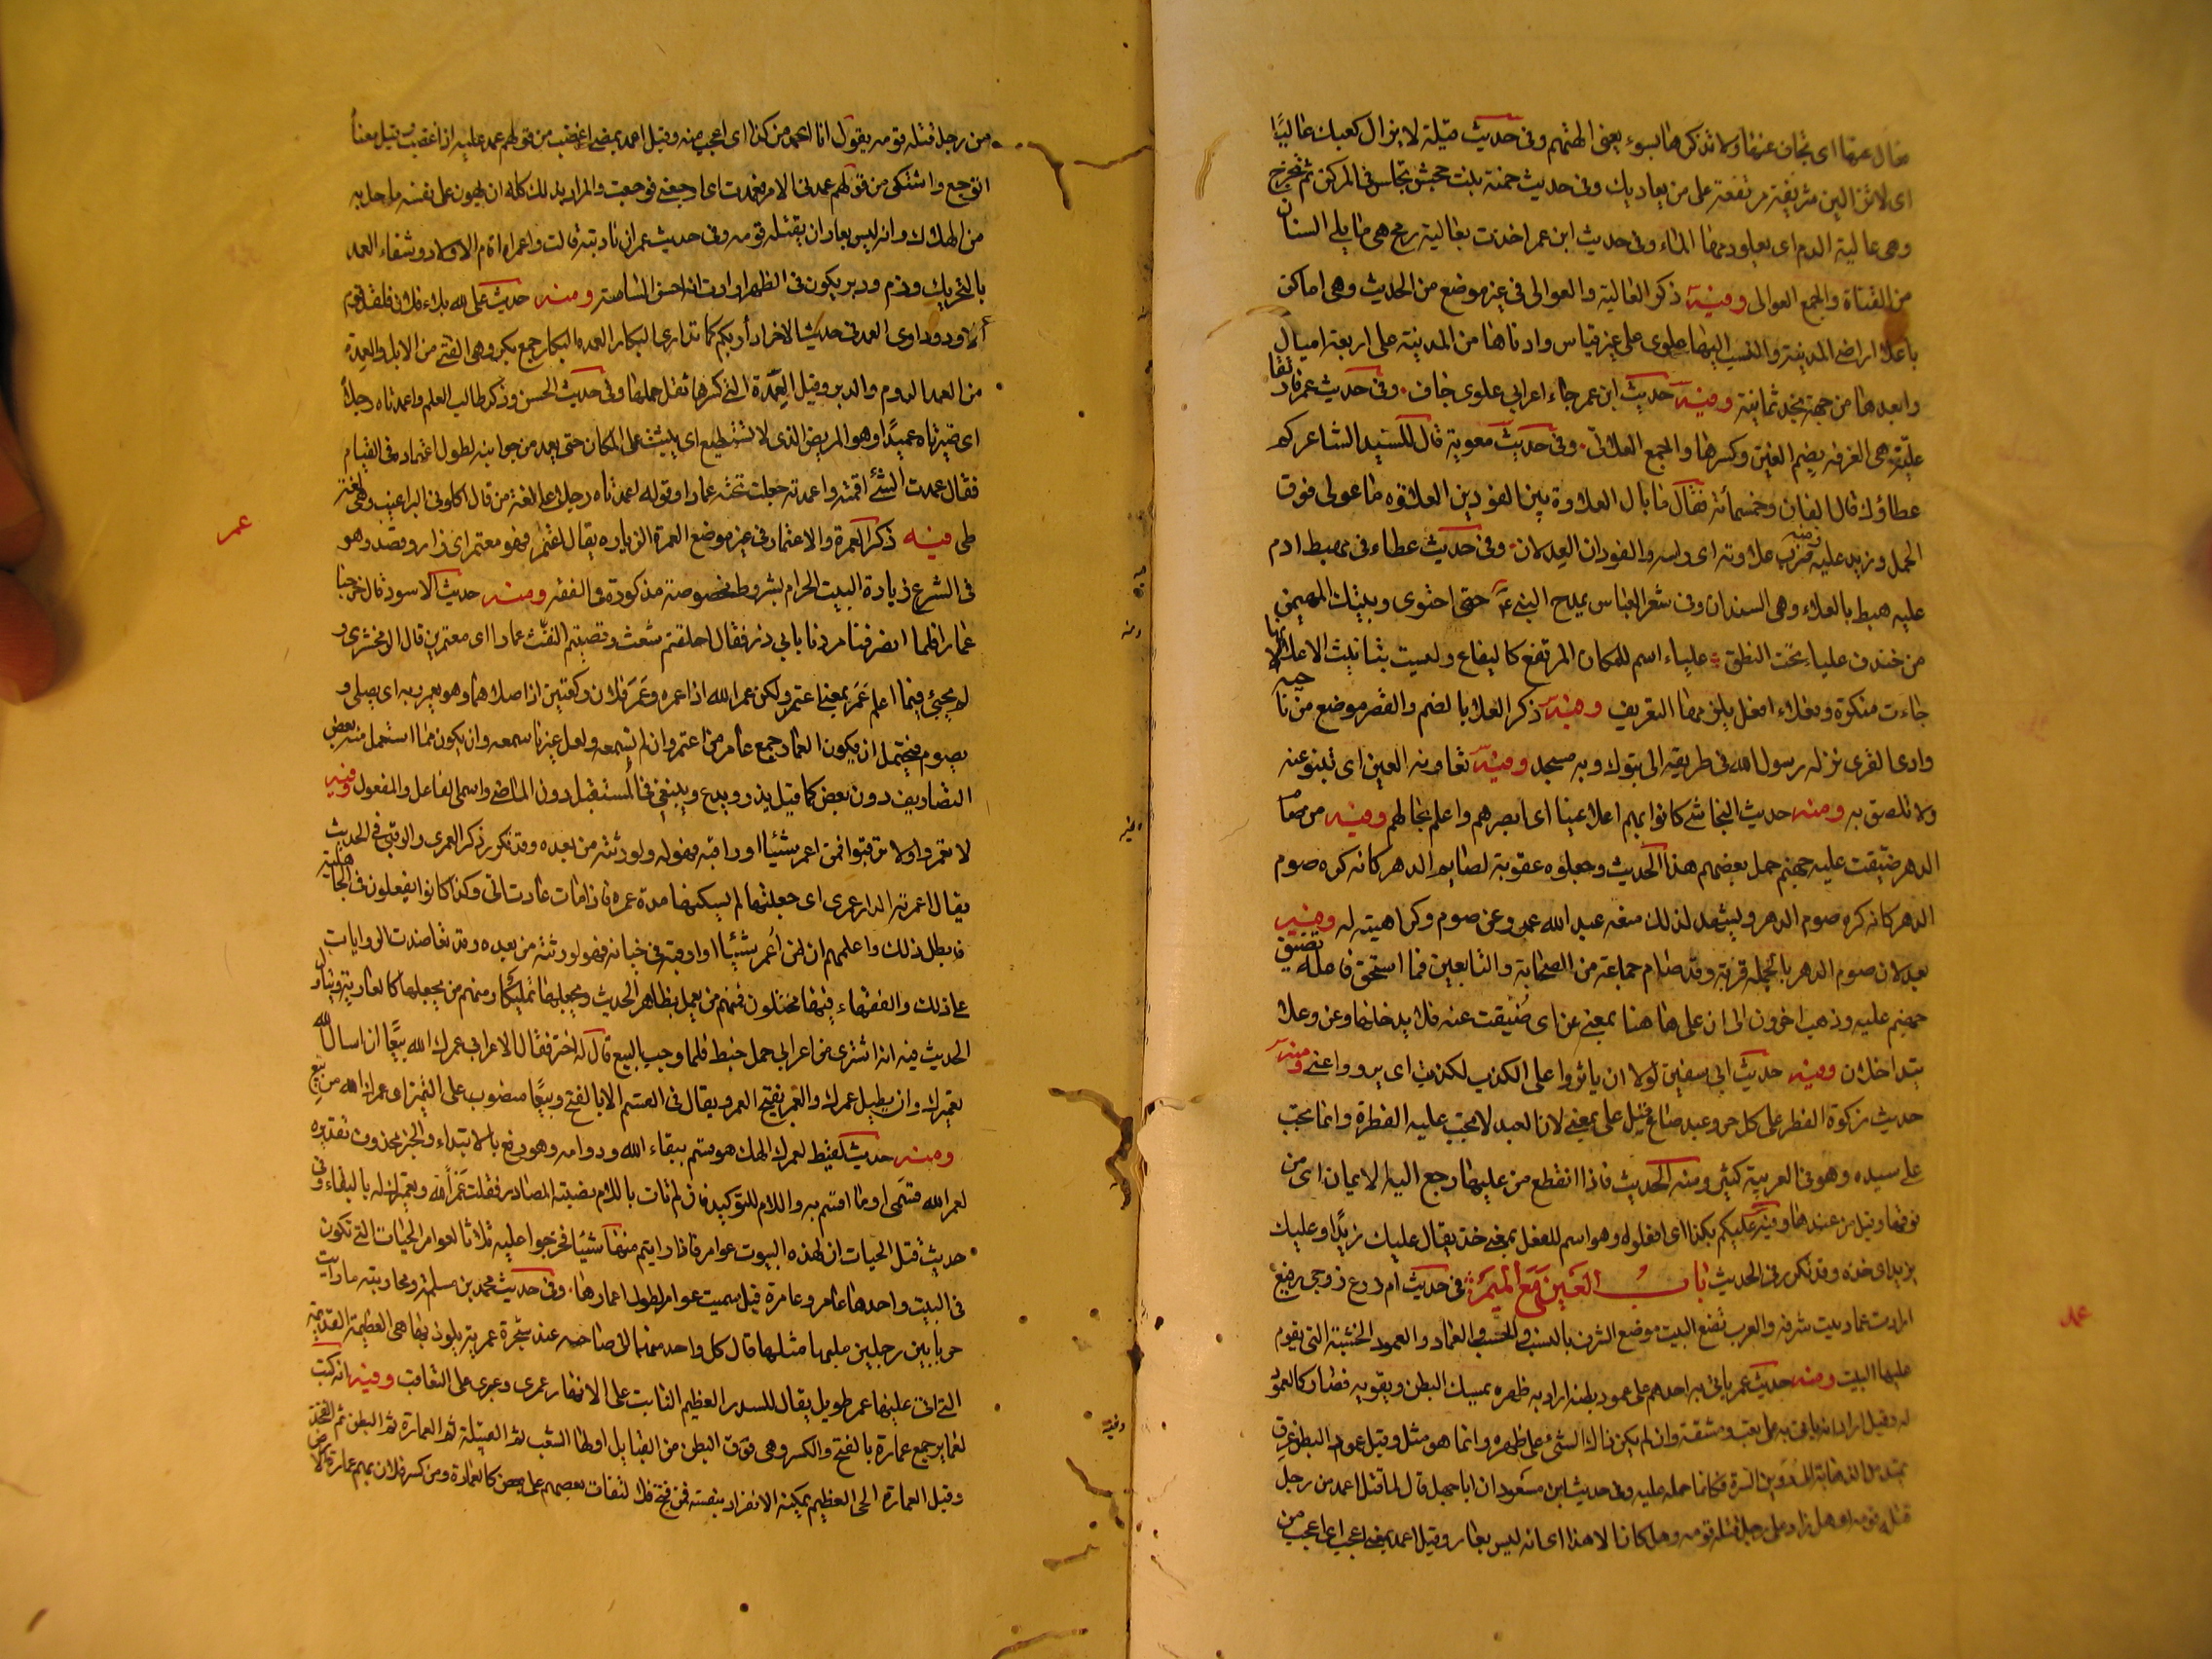 عال عنها اى تجاف عنها ولا تذكرها بسوء يعنى امهم وفى حديث قيلة لا يزال كعبك عاليا
اى لا تزالين شريفة مرتفعة على من يعاديك وفى حديث حمنة بنت جحش تجلس فى المركن ثم تخرج
وهى عالية الدم اى يعلو دمها الماء وفى حديث ابن عمر اخذت بعالية رمح هى ما يلى السنان
من القناة والجمع العوالى وفيه ذكر العالية والعوالى فى غير موضع من الحديث وهى اماكن
باعلا اراضى المدينة والنسب اليها علوى على غير قياس وادناها من المدينة على اربعة اميال
وابعدها من جهة نجد ثمانية وفيه حديث ابن عمر جاء اعرابى علوى جاف وفى حديث عمر فارتقا
علية هى الغرفه بضم العين وكسرها والجمع العلالى وفى حديث معوية قال للبيد الشاعر كم
عطاؤك قال الفان وخمسمائة فقال ما بال العلاوة بين الفودين العلاوه ما عولى فوق
الحمل وزيد عليه ومنه ضرب علاوته اى راسه والفودان العدلان وفى حديث عطاء فى مهبط ادم
عليه هبط بالعلاء وهى السندان وفى شعر العباس يمدح النبى حتى احتوى وبيتك المهيمن
من خندف علياء تحت النطق علياء اسم للمكان المرتفع كاليفاع وليست بتانيث الاعلا لانها
جاءت منكرة وفعلاء افعل يلزمها التعريف وفيه ذكر العلا بالضم والقصر موضع من ناحية
وادى القرى نزله رسول الله فى طريقه الى تبوك وبه مسجد وفيه تعلو عنه العين اى تنبو عنه
ولا تلصق به ومنه حديث النجاشى كانوا بهم اعلا عينا اى ابصر بهم واعلم بحالهم وفيه من صام
الدهر ضيقت عليه جهنم حمل بعضهم هذا الحديث وجعلوه عقوبة لصايم الدهر كانه كره صوم
الدهر كانه كره صوم الدهر ويشهد لذلك منعه عبد الله عمرو عن صوم وكراهيته له وفيه
بعد لان صوم الدهر بالجملة قربة وقد صام جماعة من الصحابة والتابعين فما استحق فاعله تضييق
جهنم عليه وذهب اخرون الى ان على هاهنا بمعنى عن اى ضيقت عنه فلا يدخلها وعن وعلا
يتداخلان وفيه حديث ابى سفين لولا ان ياثروا على الكذب لكذبت اى يرووا عنى ومنه
حديث زكوة الفطر على كل حر وعبد صاع فيل على بمعنى لان العبد لا يجب عليه الفطرة وانما تجب
على سيده وهو فى العربية كثير ومنه الحديث فاذا انقطع من عليها رجع اليه الايمان اى من
فوقها وقيل من عندها وفيه عليكم بكذا اى افعلوه وهو اسم للفعل بمعنى خذ يقال عليك زيدا وعليك
بزيد اى خذه وقد تكرر فى الحديث باب العين مع الميم فى حديث ام زرع زوجى رفيع
العماد ارادت عماد بيت شرفه والعرب تضع البيت موضع الشرف بالنسب والحسب والعماد والعمود الخشبة التى يقوم
عليها البيت ومنه حديث عمر ياتى به احدهم على عمود بطنه اراد به ظهره يمسك البطن ويقويه فصار كالعمود
له وقيل اراد انه ياتى به على تعب ومشقة وان لم يكن ذلك الشئ على ظهره وانما هو مثل وقيل عمود البطن عرق
يمتد من الرهابة الى دوين السرة فكانما حمله عليه وفى حديث ابن مسعود ان ابا جهل قال لما قتل اعمد من رجل
قتله قومه اى هل زاد على رجل قتله قومه وهل كان الا هذا اى انه ليس بعار وقيل اعمد بمعنى اعجب اى اعجب من
عمد
من رجل قتله قومه يقول انا اعمد من كذا اى اعجب منه وقيل اعمد بمعنى اغضب من قولهم عمد عليه اذا غضب وقيل معناه
اتوجع واشتكى من قولهم عمدنى الامر فعمدت اى اوجعنى فوجعت والمراد بذلك كله ان يهون على نفسه ما حل به
من الهلاك وانه ليس بعار ان يقتله قومه وفى حديث عمر ان نادبته قالت واعمراه اقام الاود وشفاء العمد
بالتحريك ورم ودبر يكون فى الظهر ارادت انه احسن السياسة ومنه حديث على لله بلاء فلان فلقد قوم
الاود وداوى العمد وفى حديثه الاخر اداريكم كما تدارى البكار العمده البكار جمع بكر وهى الفتى من الابل والعمدة
من العمد الورم والدبر وقيل العمدة التى كسرها ثقل حملها وفى حديث الحسن وذكر طالب العلم واعمدتاه رجلاه
اى صيرتاه عميدا وهو المريض الذى لا يستطيع ان يثبت على المكان حتى يعمد من جوانبه لطول اعتماده فى القيام
فقال عمدت الشئ اقمته واعمدته جعلت تحته عمادا وقوله اعمدتاه رجلاه على لغة من قال اكلونى البراغيث وهى لغة
طى فيه ذكر العمرة والاعتمار فى غير موضع العمرة الزياره يقال اعتمر فهو معتمر اى زار وقصد وهو
عمر
فى الشرع زيارة البيت الحرام بشروط مخصوصة مذكورة فى الفقه ومنه حديث الاسود قال خرجنا
عمارا فلما انصرفنا مررنا بابى ذر فقال احلقتم شعث وقضيتم التفث عمارا اى معتمرين قال الزمخشرى و
لم يجئ فيما اعلم عمر بمعنى اعتمر ولكن عمر الله اذا عبده وعمر فلان ركعتين اذا صلاهما وهو يعمر ربه اى يصلى و
يصوم فيحتمل ان يكون العمار جمع عامر من عمر بمعنى اعتمر وان لم نسمعه ولعل غيرنا سمعه وان يكون مما استعمل منه بعض
التصاريف دون بعض كما قيل يذر ويدع وينبغى فى المستقبل دون الماضى واسمى الفاعل والمفعول وفيه
لا تعمروا ولا ترقبوا فمن اعمر شيئا او ارقبه فهو له ولورثته من بعده وقد تكرر ذكر العمرى والرقبى فى الحديث
يقال اعمرته الدار عمرى اى جعلتها له يسكنها مدة عمره فاذا مات عادت الى وكذا كانوا يفعلون فى الجاهلية
فابطل ذلك واعلمهم ان من اعمر شيئا او ارقبه فى حياته فهو لورثته من بعده وقد تعاضدت الروايات
على ذلك والفقهاء فيها مختلفون فمنهم من يعمل بظاهر الحديث ويجعلها تمليكا ومنهم من يجعلها كالعارية ويتاول
الحديث فيه انه اشترى من اعرابى حمل خبط فلما وجب البيع قال له اختر فقال الاعرابى عمرك الله بيعا اى اسال الله
تعميرك وان يطيل عمرك والعمر بفتح العمر ويقال فى القسم الا بالفتح وبيعا منصوب على التميز اى عمرك الله من بيع
ومنه حديث لقيط لعمر الهك هو قسم ببقاء الله ودوامه وهو رفع بالابتداء والخبر محذوف تقديره
لعمر الله قسمى او ما اقسم به واللام للتوكيد فان لم تات باللام نصبته المصادر فقلت عمر الله وعمرك الله بالبقاء وفى
حديث قتل الحيات ان لهذه البيوت عوامر فاذا رايتم منها شيئا فحرجوا عليه ثلاثا العوامر الحيات التى تكون
فى البيت واحدها عامر وعامرة قيل سميت عوامر لطول اعمارها وفى حديث محمد بن مسلمة ومحاربته ما رايت
حربا بين رجلين قبلهما مثلها قال كل واحد منهما الى صاحبه عند شجرة عمرية يلوذ بها هى العظيمة القديمة
التى اتى عليها عمر طويل يقال للسدر العظيم النابت على الانهار عمرى وعبرى على التعاقب وفيه انه كتب
لعماير جمع عمارة بالفتح والكسر وهى فوق البطن من القبايل اولها الشعب ثم القبيلة ثم العمارة ثم البطن ثم الفخذ
وقيل العمارة الحى العظيم يمكنه الانفراد بنفسه فمن فتح فلالتفات بعضهم على بعض كالعمارة ومن كسر فلان بهم عمارة الارض